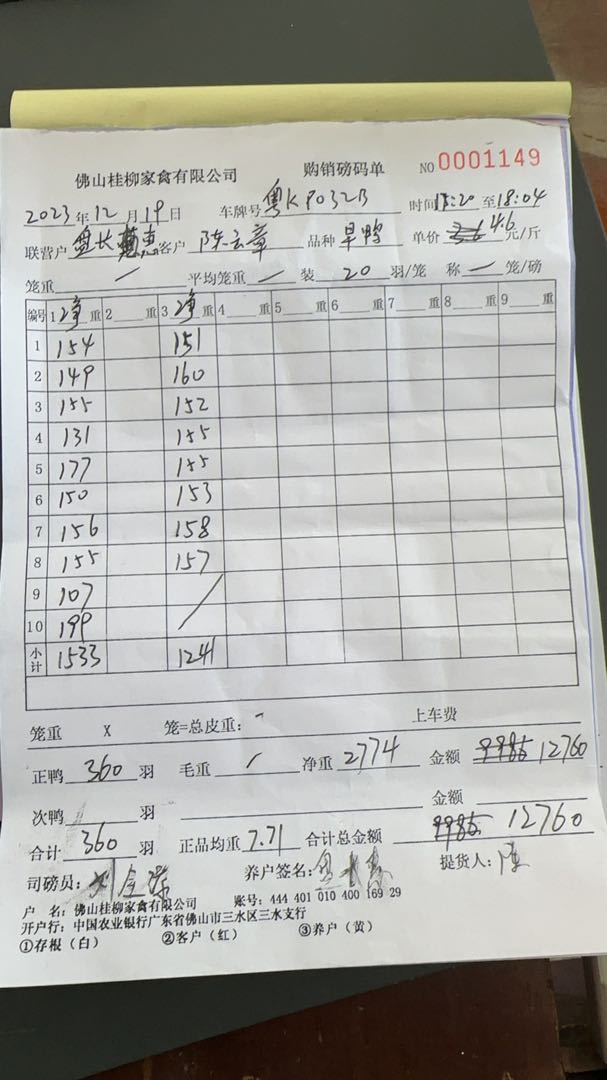 佛山桂柳家禽有限公司 购销磅码单 NO 0001149
2023年12月19日 车牌号 粤K P032B 时间 至18:04
联营户 客户 陈云章 品种 旱鸭 单价 4.6 元/斤
笼重 / 平均笼重 / 装 20 羽/笼 称 一 笼/磅
编号 1净重 2 重 3净重 4 重 5 重 6 重 7 重 8 重 9 重
1 154 151
2 149 160
3 155 152
4 131 155
5 177 155
6 150 153
7 156 158
8 155 157
9 107
10 199
小计 1533 1241
笼重 X 笼=总皮重： - 上车费
正鸭 360 羽 毛重 / 净重 2774 金额 9985 12760
次鸭 羽 金额
合计 360 羽 正品均重 7.71 合计总金额 9985 12760
司磅员： 养户签名： 提货人：陈
户 名：佛山桂柳家禽有限公司 账号：444 401 010 400 169 29
开户行：中国农业银行广东省佛山市三水区三水支行
①存根（白） ②客户（红） ③养户（黄）